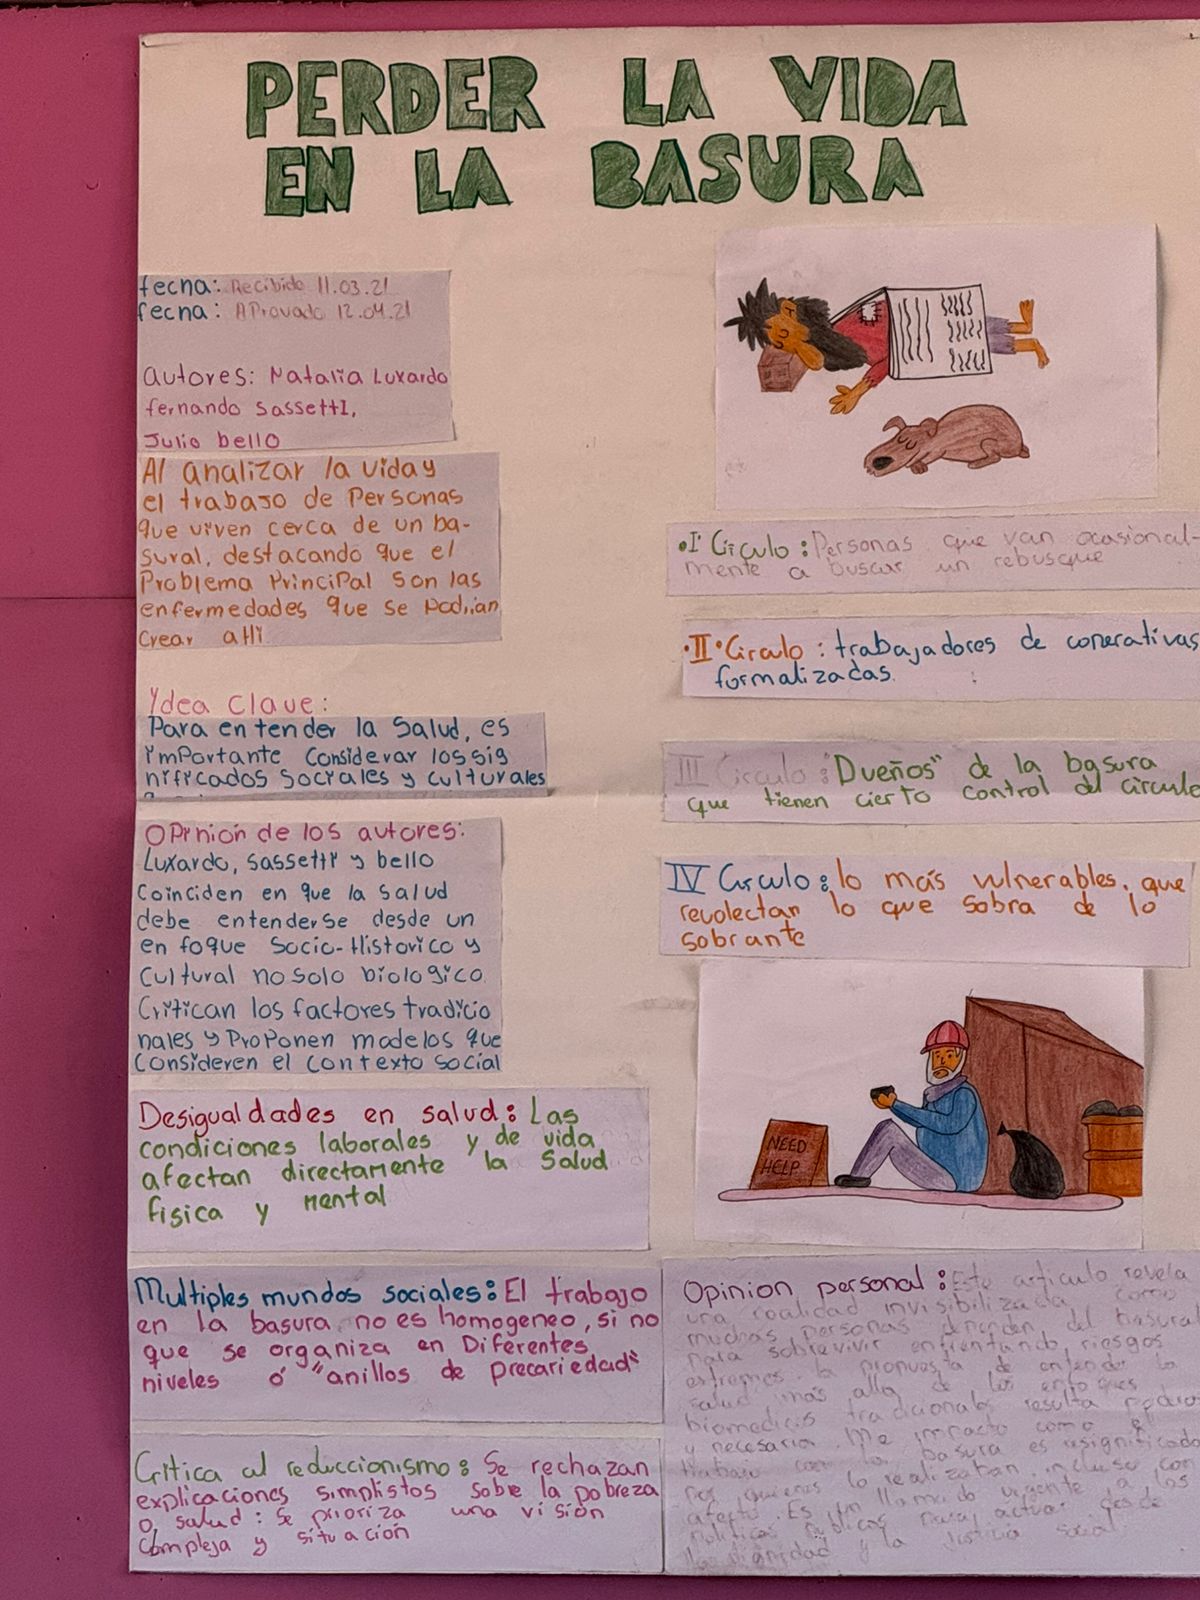 PERDER LA VIDA
EN LA BASURA
fecha: Recibido 11.03.21
fecha: APROVADO 12.04.21
autores: Natalia Luxardo
fernando SassettI,
Julio bello
Al analizar la vida y
el trabajo de Personas
que viven cerca de un ba-
sural, destacando que el
Problema Principal son las
enfermedades que se Podrian
crear alli
Ydea clave:
Para entender la Salud, es
importante considerar los sig
nificados sociales y culturales
OPinion de los autores:
Luxardo, sassetti y bello
Coinciden en que la salud
debe entenderse desde un
en foque Socio-Historico y
Cultural no solo biologico.
Critican los factores tradicio
nales y Proponen modelos que
consideren el contexto social
Desigualdades en salud: Las
condiciones laborales y de vida
afectan directamente la Salud
fisica y mental
Multiples mundos sociales: El trabajo
en la basura no es homogeneo, si no
que se organiza en Diferentes
niveles o "anillos de precariedad"
Critica al reduccionismo: Se rechazan
explicaciones simplistos sobe la pobreza
o salud: se prioriza una visión
Compleja y situación
•I° Circulo: Personas que van ocasional-
mente a buscar un rebusque
•II•Circulo: trabajadores de conerativas
formalizadas.
III Circulo: "Dueños" de la basura
que tienen cierto control del circulo
IV Circulo: lo más vulnerables, que
revolectan lo que sobra de lo
sobrante
NEED
HELP
Opinion personal: Este articulo revela
una realidad invisibilizada como
muchas personas dependen del basural
para sobrevivir enfrentando riesgos
extremos. la propuesta de entender la
salud mas alla de los enfoques
biomedicos tradicionales resulta
y necesaria. Me impacto como el
trabajo con la basura es
por quienes lo realizaban incluso con
afecto. Es un llamado urgente a las
politicas publicas para actuar desde
la dignidad y la justicia social